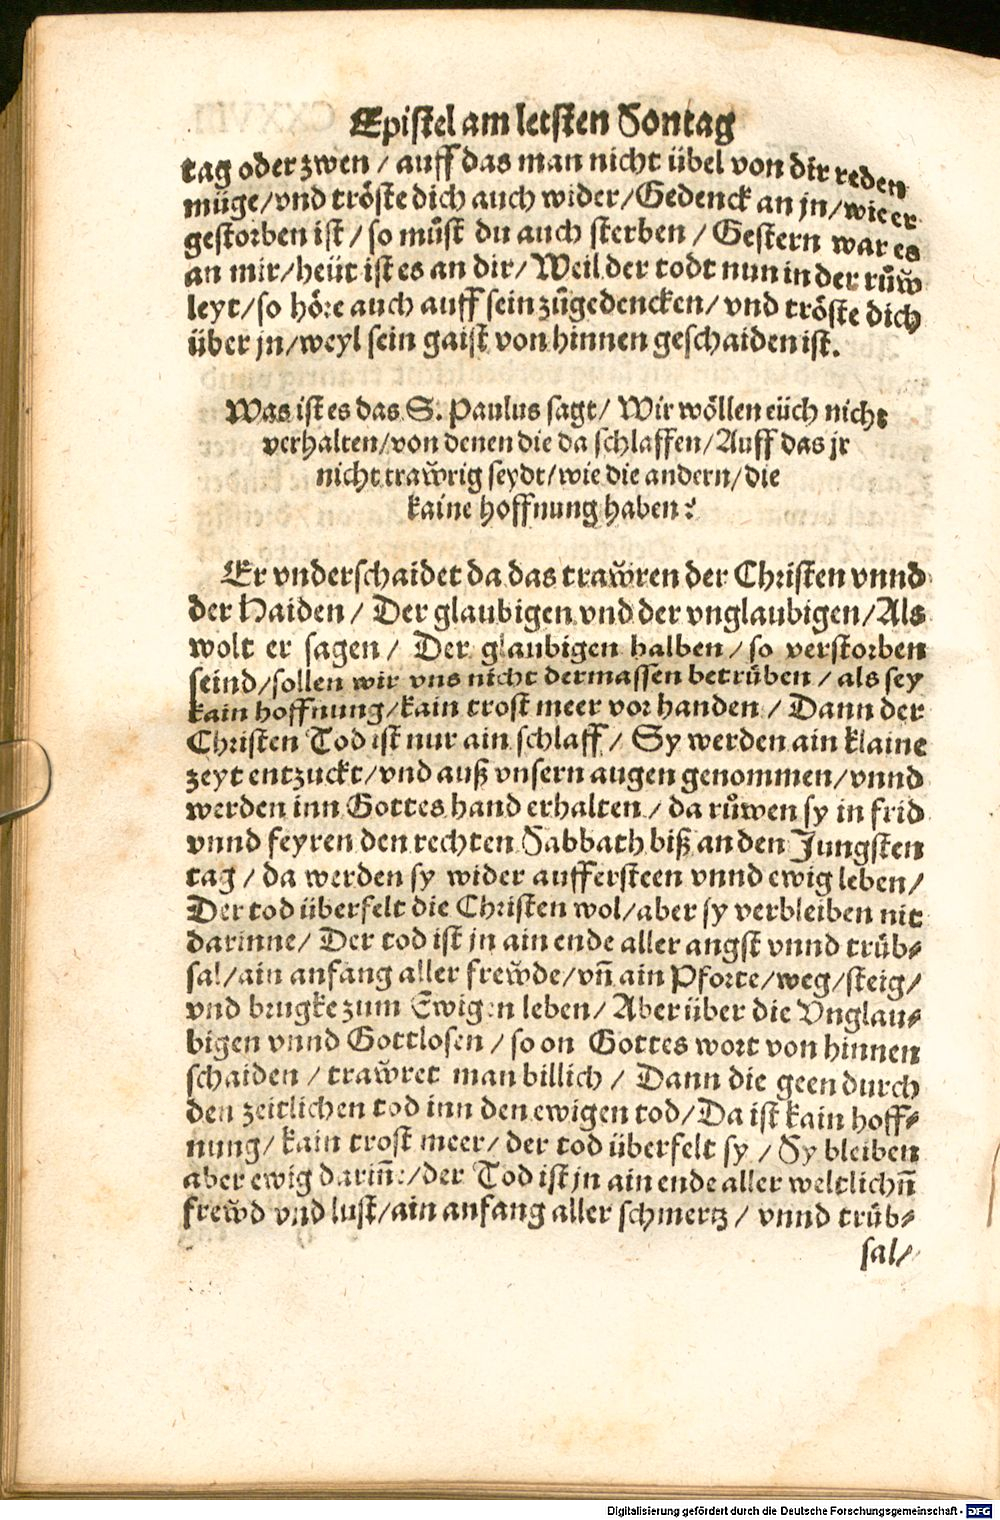 Epistel am letsten Sontag
tag oder zwen / auff das man nicht übel von dir reden
müge/vnd tröste dich auch wider/Gedenck an jn/wie er
gestorben ist / so můst du auch sterben / Gestern war es
an mir/heüt ist es an dir/ Weil der todt nun in der růw
leyt/so höre auch auff sein zůgedencken/ vnd tröste dich
über jn/weyl sein gaist von hinnen geschaiden ist.
Was ist es das S. Paulus sagt/ Wir wöllen eüch nicht
verhalten/von denen die da schlaffen/Auff das jr
nicht traẘrig seydt/wie die andern/die
kaine hoffnung haben?
Er vnderschaidet da das traẘren der Christen vnnd
der Haiden / Der glaubigen vnd der vnglaubigen/Als
wolt er sagen / Der glaubigen halben / so verstorben
seind/sollen wir vns nicht dermassen betrůben / als sey
kain hoffnung/kain trost meer vorhanden / Dann der
Christen Tod ist nur ain schlaff / Sy werden ain klaine
zeyt entzuckt/vnd auß vnsern augen genommen/vnnd
werden inn Gottes hand erhalten / da růwen sy in frid
vnnd feyren den rechten Sabbath biß an den Jungsten
tag / da werden sy wider auffersteen vnnd ewig leben/
Der tod überfelt die Christen wol/aber sy verbleiben nit
darinne/ Der tod ist jn ain ende aller angst vnnd trůb⸗
sal/ain anfang aller freẘde/vñ ain Pforte/weg/steig/
vnd brugke zum Ewigen leben/ Aber über die Vnglau⸗
bigen vnnd Gottlosen / so on Gottes wort von hinnen
schaiden / traẘret man billich / Dann die geen durch
den zeitlichen tod inn den ewigen tod/Da ist kain hoff⸗
nung/ kain trost meer/ der tod überfelt sy / Sy bleiben
aber ewig dariñe/der Tod ist jn ain ende aller weltlichñ
freẘd vnd lust/ain anfang aller schmertz / vnnd trůb⸗
sal/
Digitalisierung gefördert durch die Deutsche Forschungsgemeinschaft - DFG